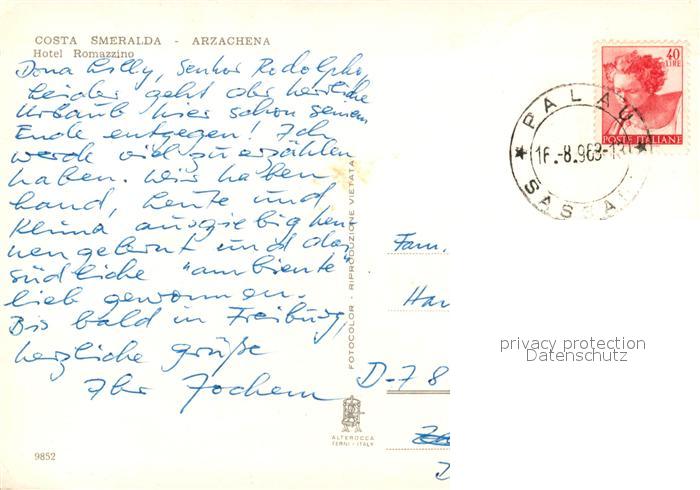 COSTA SMERALDA - ARZACHENA
Hotel Romazzino
Dona Lilly, Senhor Rodolpho,
Leider geht der herrliche
Urlaub hier schon seinem
Ende entgegen! Ich
werde viel zu erzählen
haben. Wir haben
Land, Leute und
Klima ausgiebig ken-
nengelernt und das
südliche "ambiente"
lieb gewonnen.
Bis bald in Freiburg,
herzliche Grüße
Ihr Jochem
9852
FOTOCOLOR - RIPRODUZIONE VIETATA
ALTEROCCA
TERNI - ITALY
40
LIRE
POSTE ITALIANE
PALAU
SASSARI
Fam.
Han
D-78
privacy protection
Datenschutz